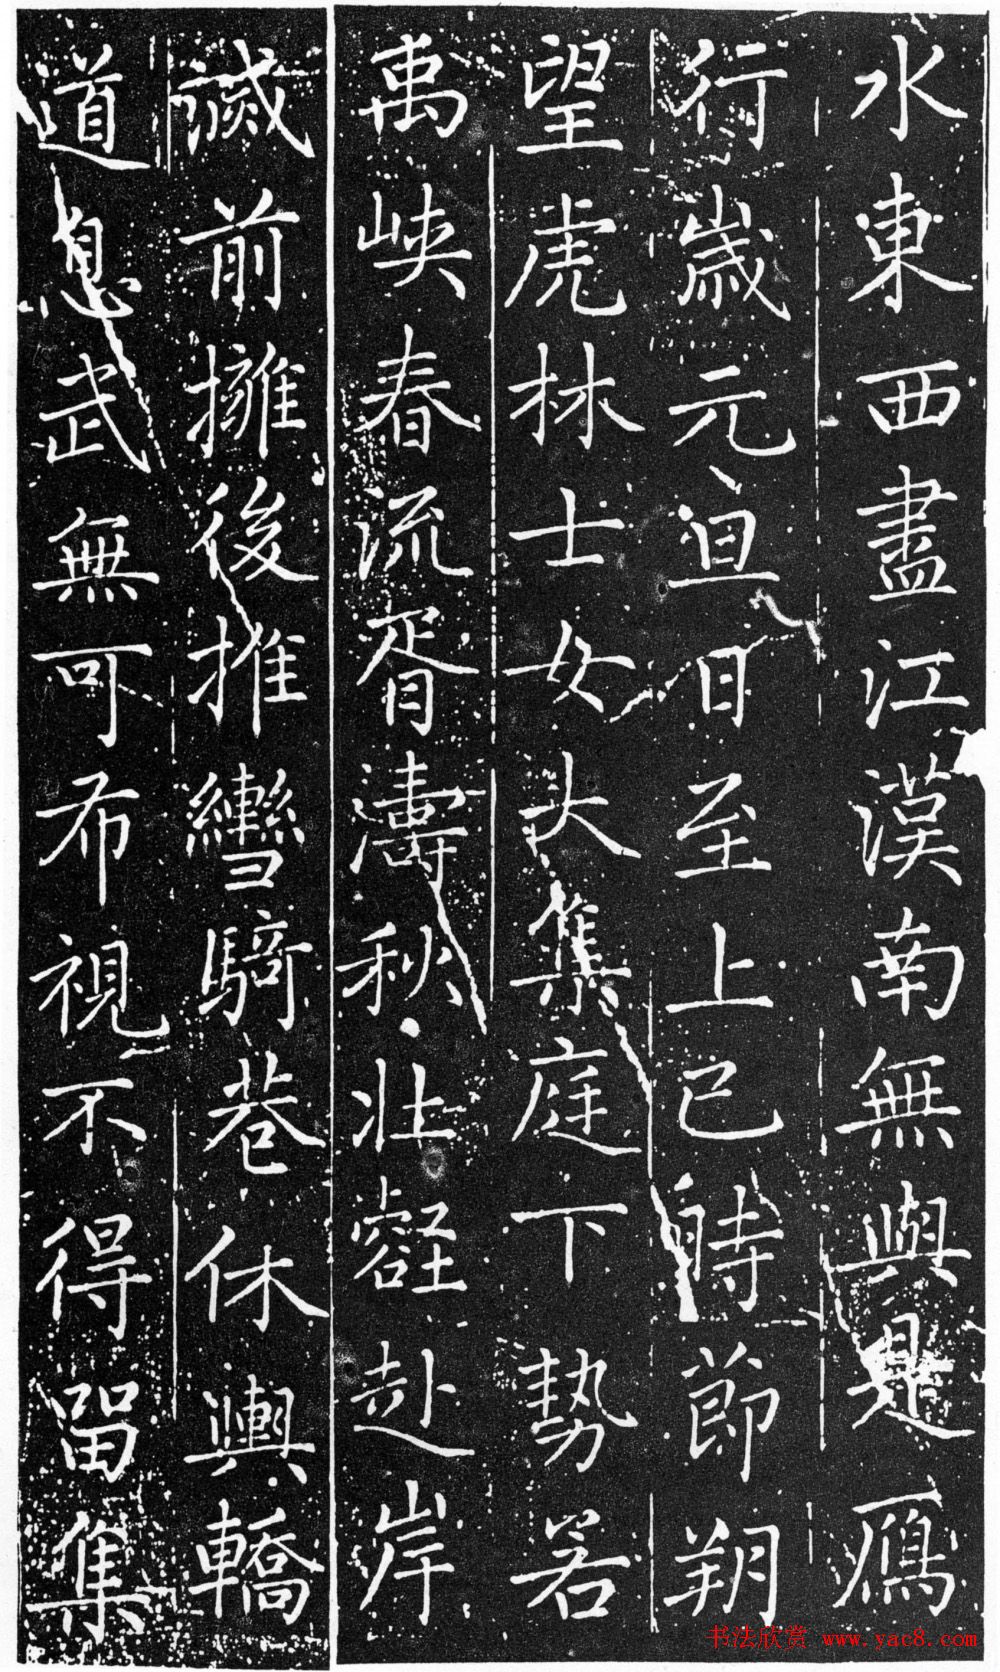 水東西盡江漢南無與是鴈
行歲元旦日至上巳時節朔
望虎林士女大集庭下勢若
禹峽春流胥濤秋壯壑赴岸
滅前擁後推轡騎巷休輿轎
道息武無可布視不得留集
书法欣赏 www.yac8.com